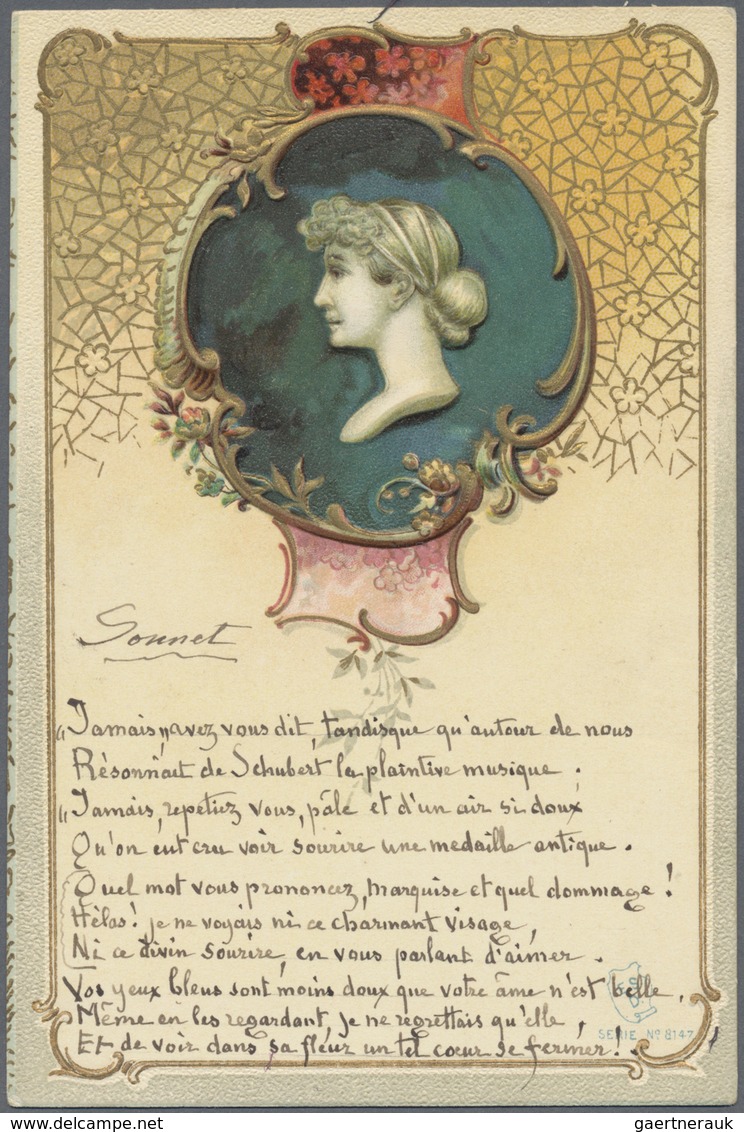 Sonnet
"Jamais", avez vous dit, tandisque qu'autour de nous
Résonnait de Schubert la plaintive musique.
"Jamais, repetiez vous, pâle et d'un air si doux
Qu'on eut cru voir sourire une medaille antique.
Quel mot vous prononcez, marquise et quel dommage !
Hélas! je ne voyais ni ce charmant visage,
Ni ce divin sourire, en vous parlant d'aimer.
Vos yeux bleus sont moins doux que votre âme n'est belle.
Même en les regardant, je ne regrettais qu'elle,
Et de voir dans sa fleur un tel cœur se fermer!
SERIE Nº 8147
gaertnerauk